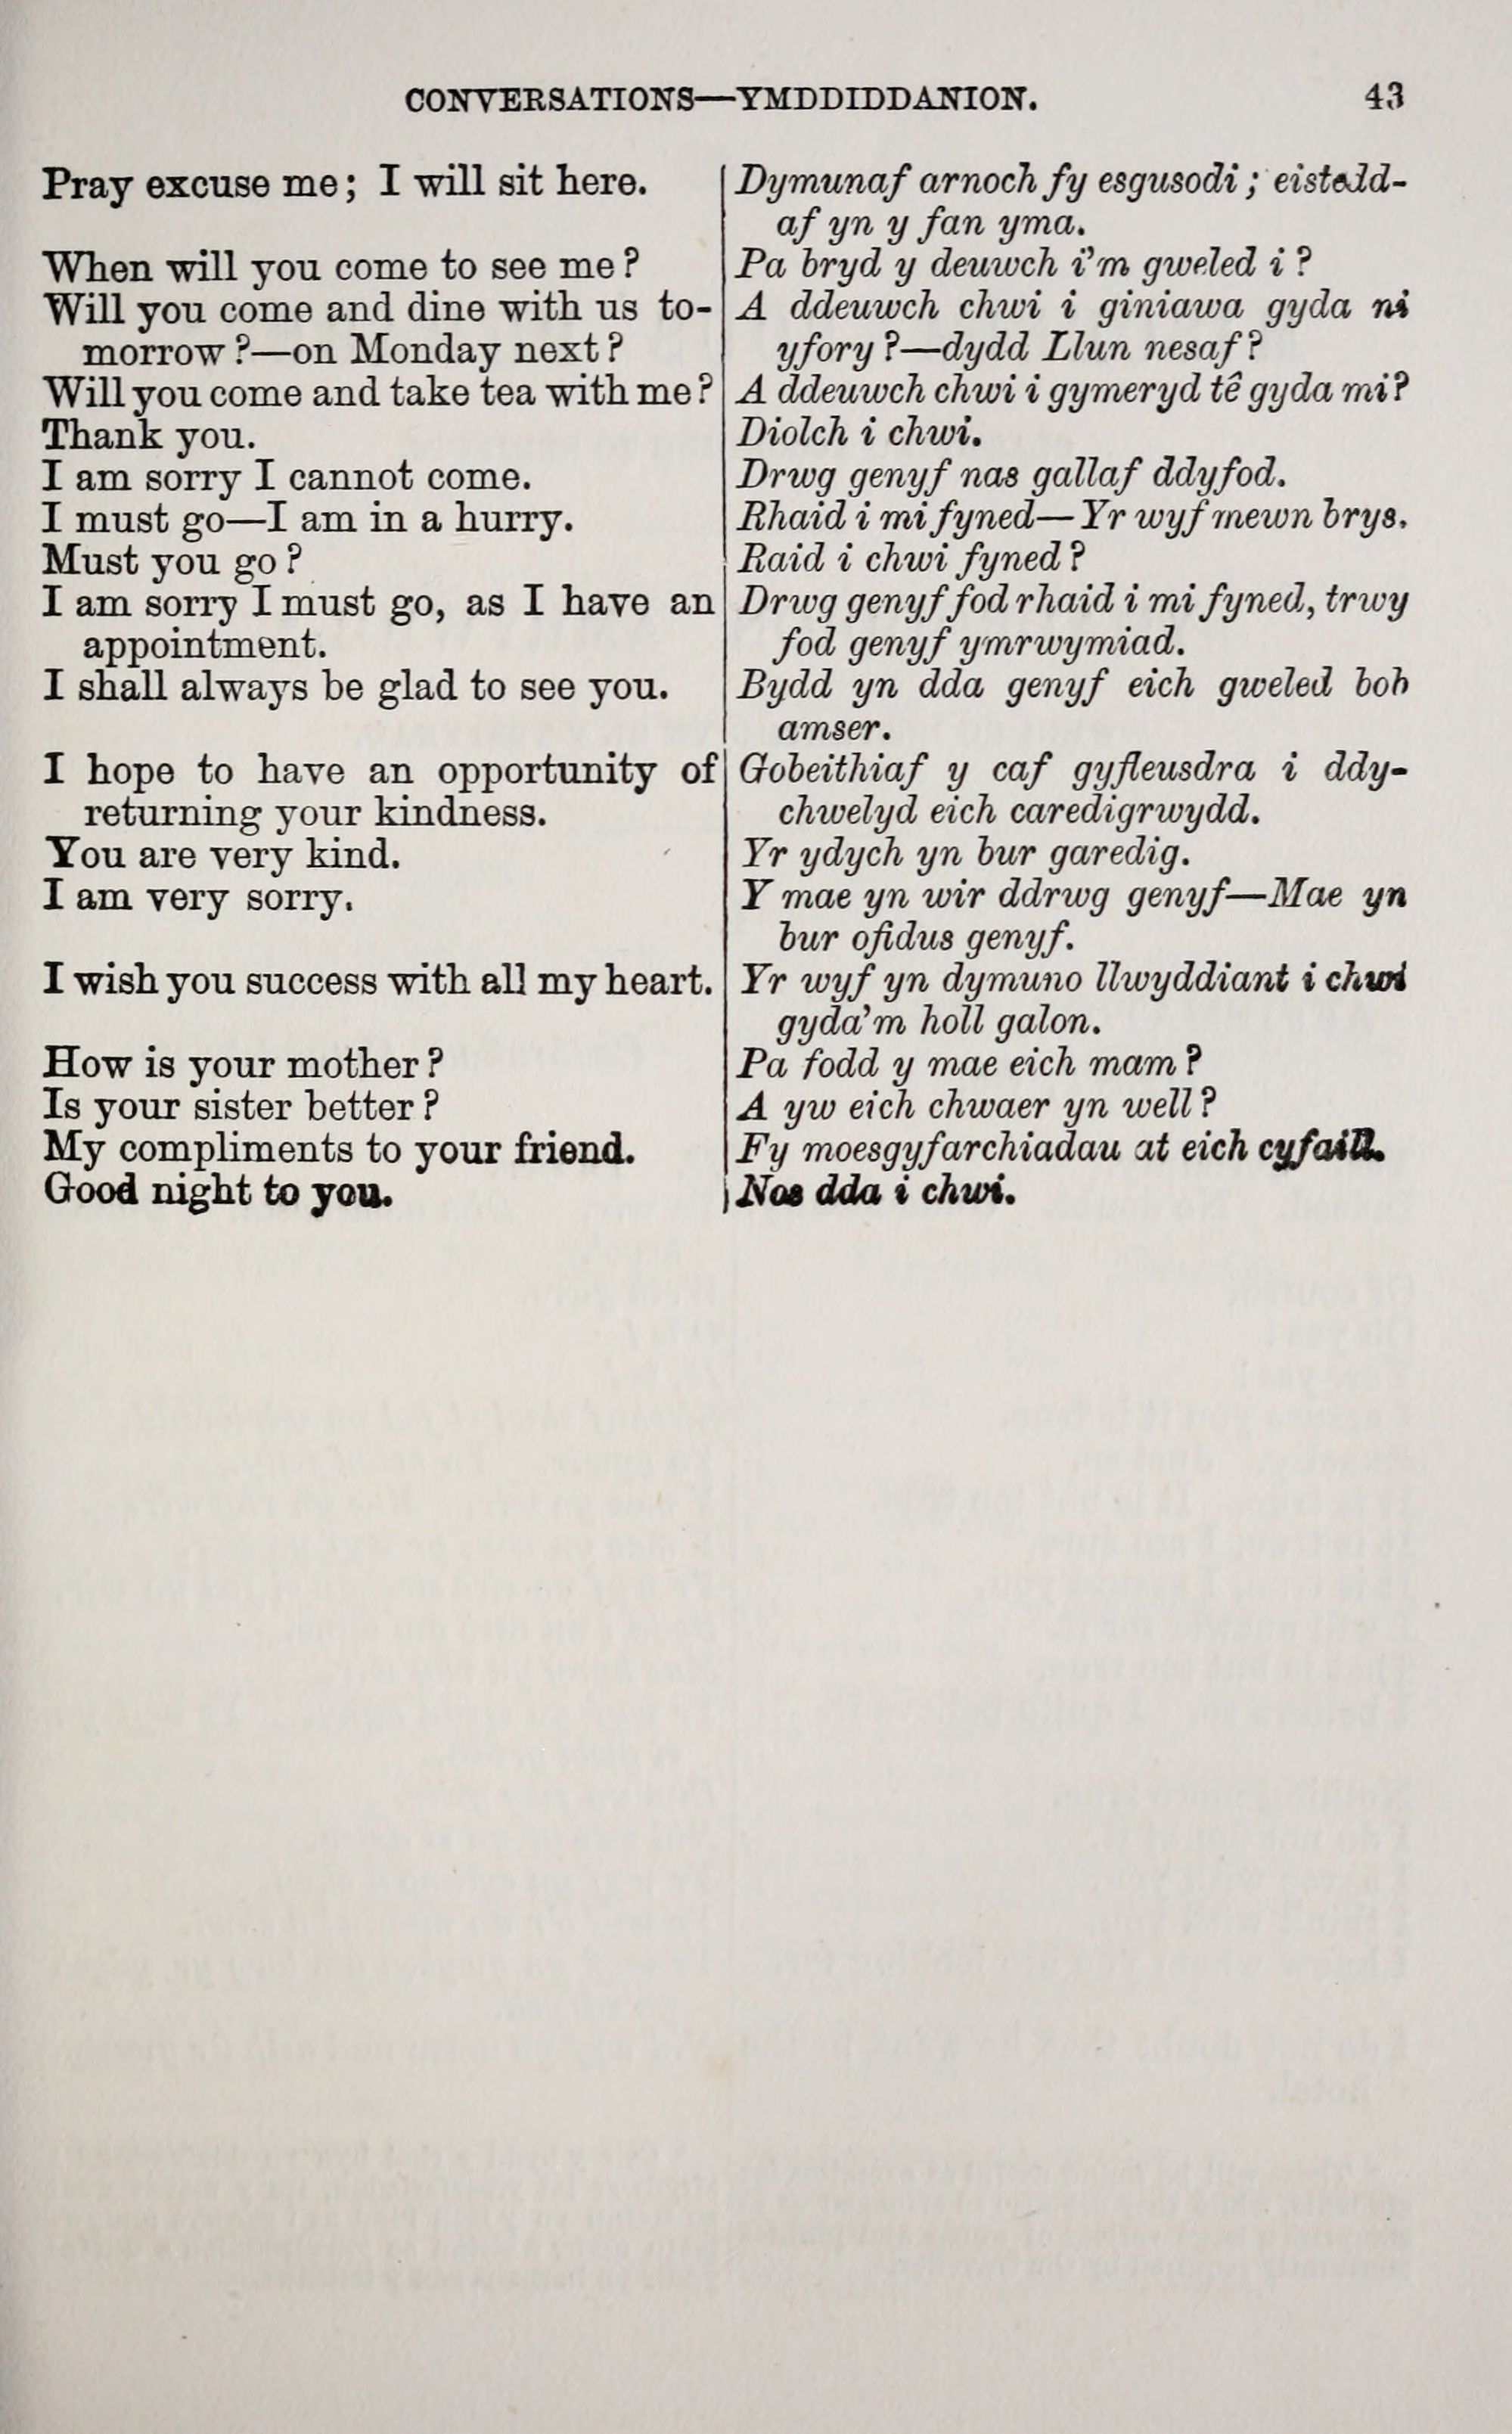 CONVERSATIONS—YMDDIDDANION. 43
Pray excuse me; I will sit here.
When will you come to see me?
Will you come and dine with us to-
morrow?—on Monday next?
Will you come and take tea with me?
Thank you.
I am sorry I cannot come.
I must go—I am in a hurry.
Must you go?
I am sorry I must go, as I have an
appointment.
I shall always be glad to see you.
I hope to have an opportunity of
returning your kindness.
You are very kind.
I am very sorry.
I wish you success with all my heart.
How is your mother?
Is your sister better?
My compliments to your friend.
Good night to you.
Dymunaf arnoch fy esgusodi; eistedd-
af yn y fan yma.
Pa bryd y deuwch i'm gweled i?
A ddeuwch chwi i giniawa gyda ni
yfory?—dydd Llun nesaf?
A ddeuwch chwi i gymeryd tê gyda mi?
Diolch i chwi.
Drwg genyf nas gallaf ddyfod.
Rhaid i mi fyned—Yr wyf mewn brys.
Raid i chwi fyned?
Drwg genyf fod rhaid i mi fyned, trwy
fod genyf ymrwymiad.
Bydd yn dda genyf eich gweled bob
amser.
Gobeithiaf y caf gyfleusdra i ddy-
chwelyd eich caredigrwydd.
Yr ydych yn bur garedig.
Y mae yn wir ddrwg genyf—Mae yn
bur ofidus genyf.
Yr wyf yn dymuno llwyddiant i chwi
gyda'm holl galon.
Pa fodd y mae eich mam?
A yw eich chwaer yn well?
Fy moesgyfarchiadau at eich cyfaill.
Nos dda i chwi.